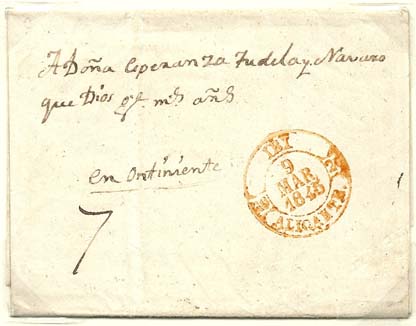 A Doña Esperanza Tudela y Navarro
que Dios g.e m.s añ.s
en Ontiniente
7
IBI
9
MAR
1845
ALICANTE.